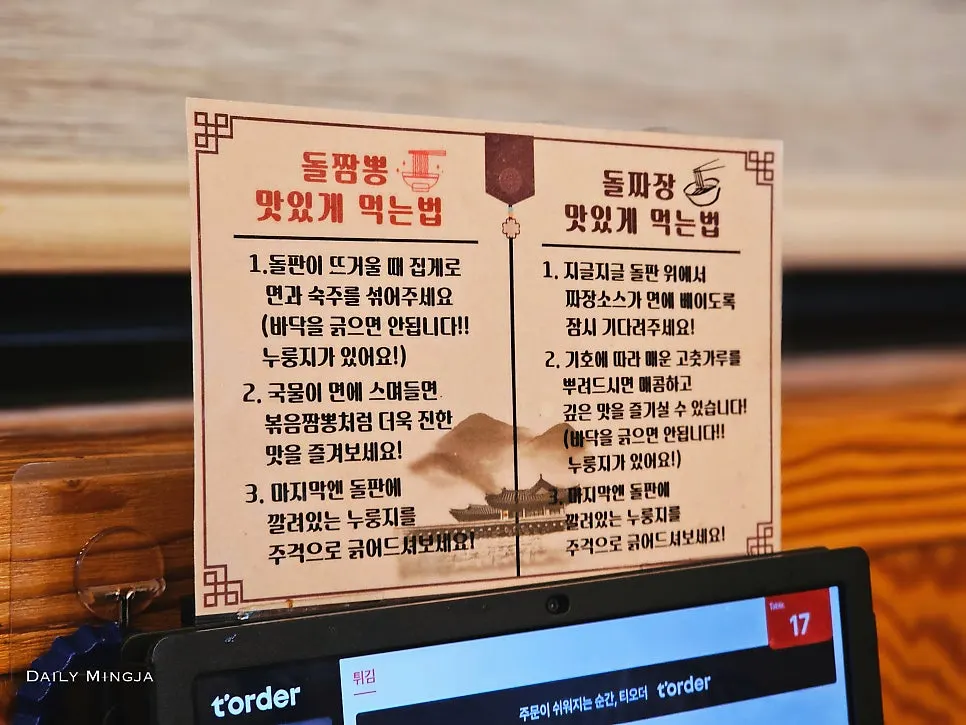 돌짬뽕
맛있게 먹는법
1.돌판이 뜨거울 때 집게로
면과 숙주를 섞어주세요
(바닥을 긁으면 안됩니다!!
누룽지가 있어요!)
2. 국물이 면에 스며들면
볶음짬뽕처럼 더욱 진한
맛을 즐겨보세요!
3. 마지막엔 돌판에
깔려있는 누룽지를
주걱으로 긁어드셔보세요!
돌짜장
맛있게 먹는법
1. 지글지글 돌판 위에서
짜장소스가 면에 베이도록
잠시 기다려주세요!
2. 기호에 따라 매운 고춧가루를
뿌려드시면 매콤하고
깊은 맛을 즐기실 수 있습니다!
(바닥을 긁으면 안됩니다!!
누룽지가 있어요!)
3. 마지막엔 돌판에
깔려있는 누룽지를
주걱으로 긁어드셔보세요!
Table
17
t'order
튀김
주문이 쉬워지는 순간, 티오더 t'order
DAILY MINGJA